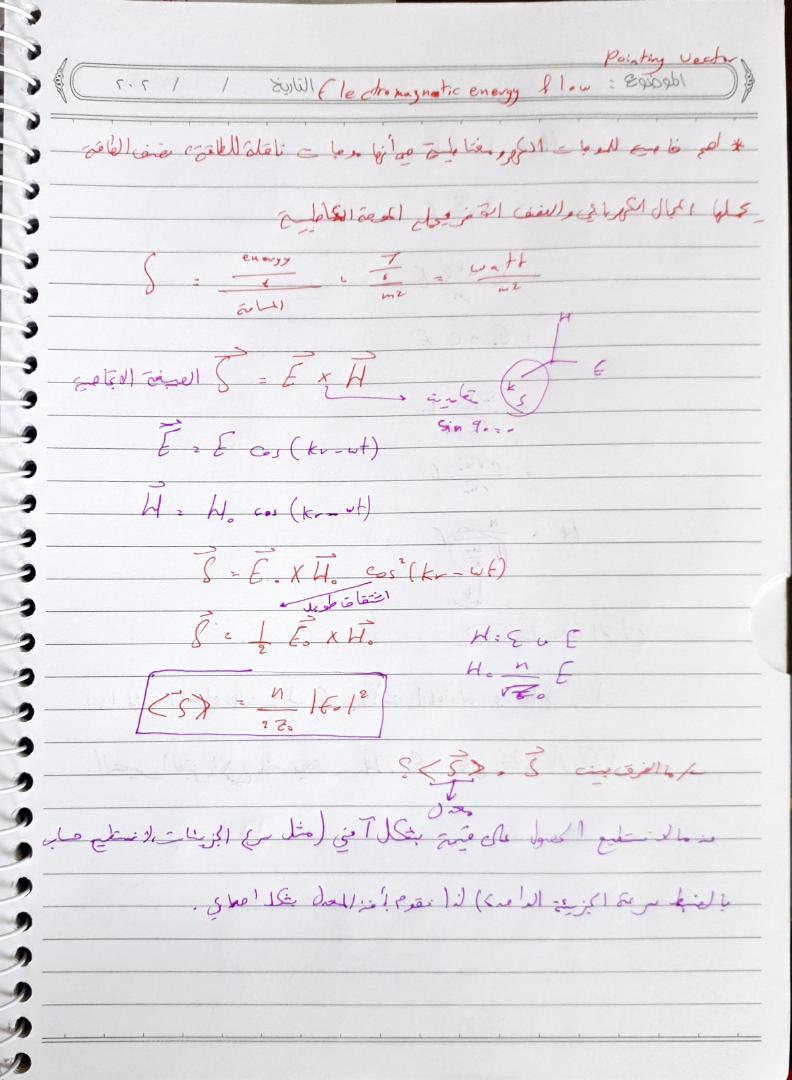 Pointing vector
الموضوع : Electromagnetic energy flow التاريخ / / ٢٠٢
* اهم خاصية للموجات الكهرومغناطيسية هو أنها موجات ناقلة للطاقة، نصف الطاقة
يحملها المجال الكهربائي والنصف الآخر يحمله الموجة المغناطيسية
S = energy/s / المساحة = J/s / m2 = watt / m2
H
E
K
S
الصيغة الاتجاهية S⃗ = E⃗ × H⃗
متعامدين
sin 90
E⃗ = E cos (kr - wt)
H⃗ = H₀ cos (kr - wt)
S⃗ = E⃗₀ × H⃗₀ cos² (kr - wt)
اشتقاق طويل
S⃗ = 1/2 E⃗₀ × H⃗₀
H = ε υ E
H = n/Z₀ E
<S⃗> = n/2Z₀ |E₀|²
س/ ما الفرق بين S⃗ و <S⃗> ؟
معدل
عندما لا نستطيع الحصول على قيمة بشكل آني (مثل سرعة الجزيئات، لا نستطيع حساب
بالضبط سرعة الجزيئة الواحدة) لذا نقوم بأخذ المعدل بشكل احصائي .